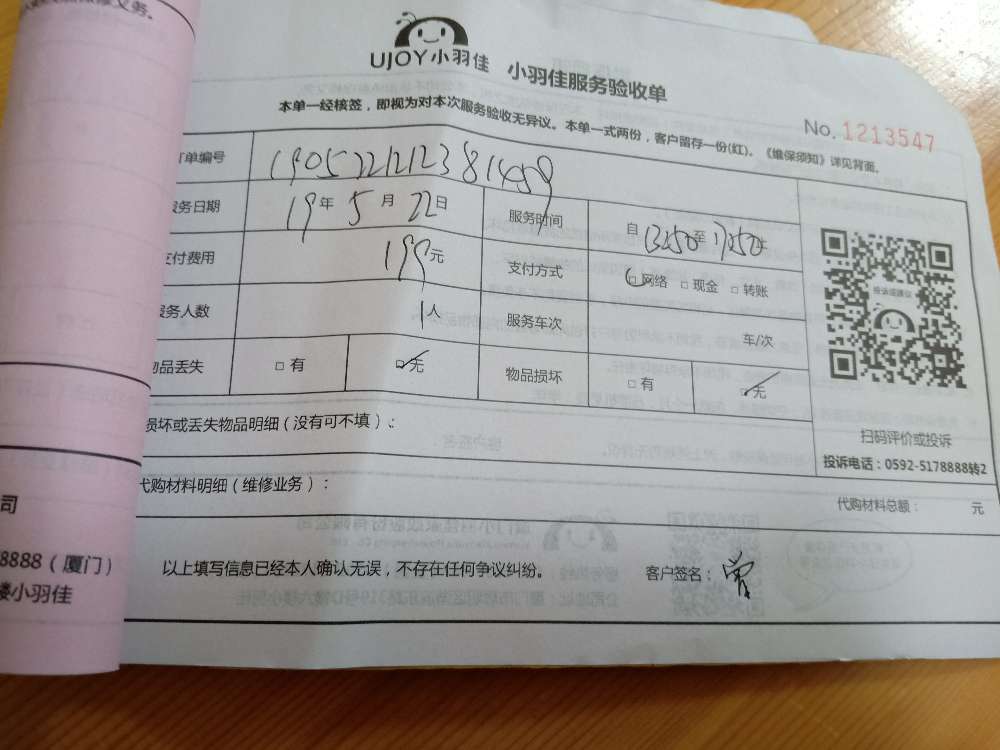 UJOY小羽佳 小羽佳服务验收单
本单一经核签，即视为对本次服务验收无异议。本单一式两份，客户留存一份(红)。《维保须知》详见背面。
No. 1213547
单编号 1905221212381459
服务日期 19年5月22日 服务时间 自13:50至17:50
支付费用 199元 支付方式 □网络 □现金 □转账
服务人数 1人 服务车次 车/次
物品丢失 □有 ☑无 物品损坏 □有 ☑无
损坏或丢失物品明细（没有可不填）：
扫码评价或投诉
投诉电话：0592-5178888转2
代购材料明细（维修业务）：
代购材料总额： 元
以上填写信息已经本人确认无误，不存在任何争议纠纷。
客户签名：曾
司
8888（厦门）
楼小羽佳